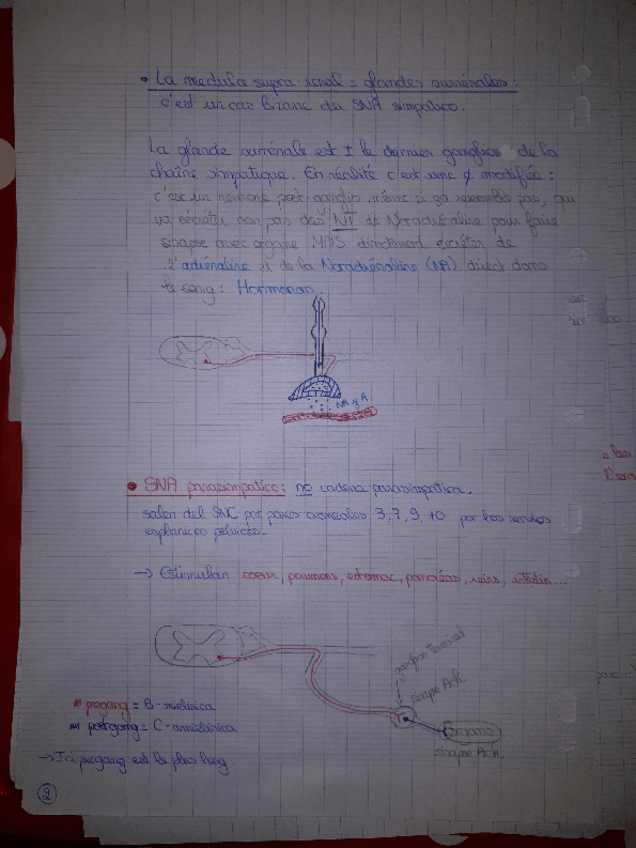 • La medula supra-renal = glandes surrénales :
c'est un cas bizarre du SNA simpatico.
La glande surrénale est I le dernier ganglion de la
chaîne simpatique. En réalité c'est une modifiée :
c'est un neurone post-ganglio, même si ça ressemble pas, qui
va sécréter non pas des NT de Noradrénaline pour faire
sinapse avec organe MAIS directement excréter de
l'adrénaline et de la Noradrénaline (NA) direct dans
le sang : Hormonas.
NA y A
• SNA parasimpatico : no cadena parasimpatica.
salen del SNC por pares craneales 3, 7, 9, 10 por los nervios
esplanicos pelvicos.
→ Estimulan coeur, poumons, estomac, pancréas, reins, intestin...
ganglion terminal
sinapse Ach
pregang = B-mielinica
postgang = C-amielinica
organo
sinapse Ach
→ Ici pregang est le plus long